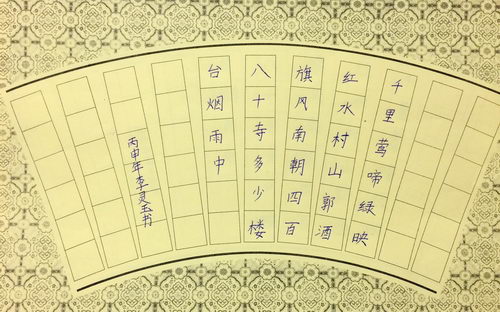 千里莺啼绿映
红水村山郭酒
旗风南朝四百
八十寺多少楼
台烟雨中
丙申年李灵玉书